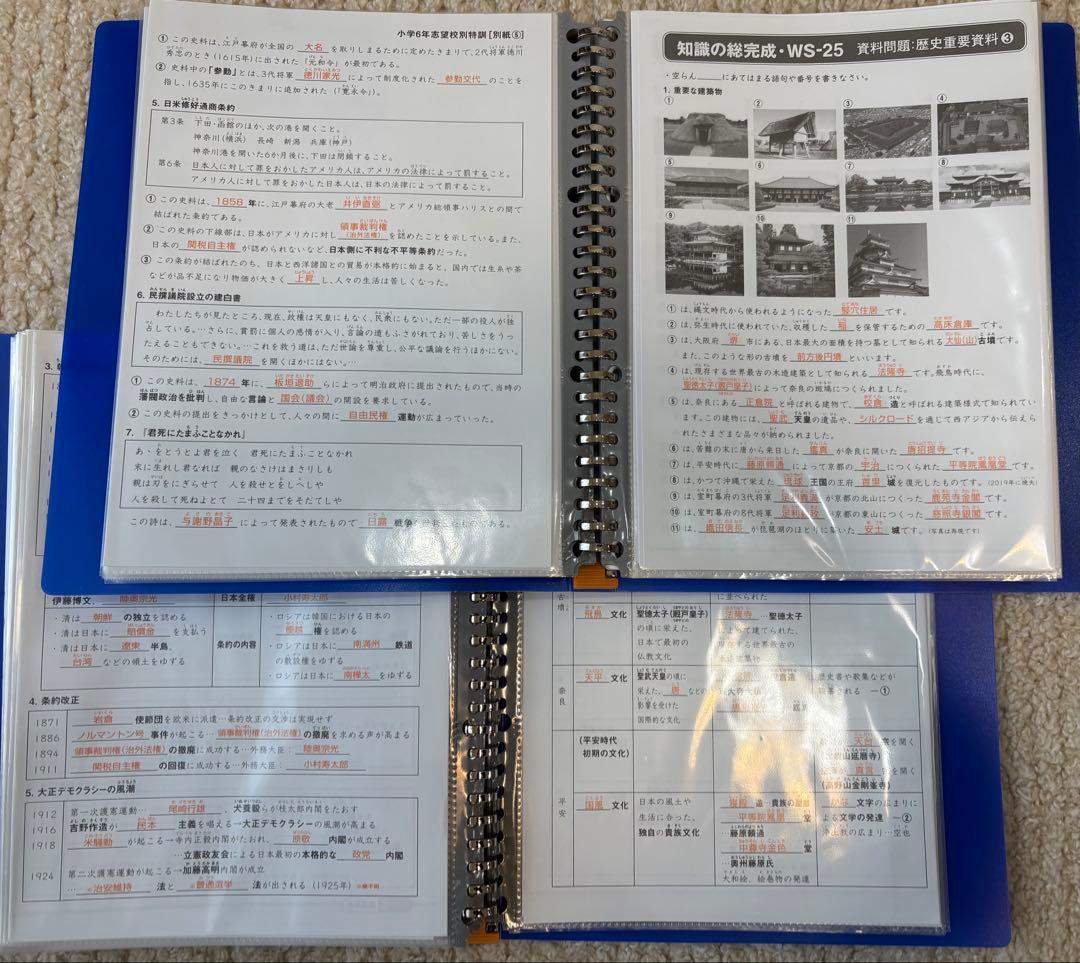 小学6年志望校別特訓［別紙⑥］
① この史料は、江戸幕府が全国の 大名 を取りしまるために定めたきまりで、2代将軍徳川
秀忠のとき(1615年)に出された「元和令」が最初である。
② 史料中の「参勤」とは、3代将軍 徳川家光 によって制度化された 参勤交代 のことを
指し、1635年にこのきまりに追加された(「寛永令」)。
5. 日米修好通商条約
第3条 下田・函館のほか、次の港を開くこと。
神奈川(横浜) 長崎 新潟 兵庫(神戸)
神奈川港を開いた6か月後に、下田は閉鎖すること。
第6条 日本人に対して罪をおかしたアメリカ人は、アメリカの法律によって罰すること。
アメリカ人に対して罪をおかした日本人は、日本の法律によって罰すること。
① この史料は、 1858 年に、江戸幕府の大老 井伊直弼 とアメリカ総領事ハリスとの間で
結ばれた条約である。
② この史料の下線部は、日本がアメリカに対し 領事裁判権(治外法権) を認めたことを示している。また、
日本の 関税自主権 が認められないなど、日本側に不利な不平等条約だった。
③ この条約が結ばれたのち、日本と西洋諸国との貿易が本格的に始まると、国内では生糸や茶
などが品不足になり物価が大きく 上昇 し、人々の生活は苦しくなった。
6. 民撰議院設立の建白書
わたしたちが見たところ、現在、政権は天皇にもなく、民衆にもない。ただ一部の役人が独
占している。…さらに、賞罰に個人の感情が入り、言論の道もふさがれており、苦しさをうっ
たえることもできない。…これを救う道は、ただ世論を尊重し、公平な議論を行うほかにない。
そのためには、 民撰議院 を開くほかにはない…。
① この史料は、 1874 年に、 板垣退助 らによって明治政府に提出されたもので、当時の
藩閥政治を批判し、自由な言論と 国会(議会) の開設を要求している。
② この史料の提出をきっかけとして、人々の間に 自由民権 運動が広まっていった。
7. 「君死にたまふことなかれ」
あゝをとうとよ君を泣く 君死にたまふことなかれ
末に生れし君なれば 親のなさけはまさりしも
親は刃をにぎらせて 人を殺せとをしへしや
人を殺して死ねよとて 二十四までをそだてしや
この詩は、 与謝野晶子 によって発表されたもので 日露 戦争
知識の総完成・WS-25 資料問題:歴史重要資料❸
・空らん____にあてはまる語句や番号を書きなさい。
1. 重要な建築物
① ② ③ ④
⑤ ⑥ ⑦ ⑧
⑨ ⑩ ⑪
①は、縄文時代から使われるようになった 竪穴住居 です。
②は、弥生時代に使われていた、収穫した 稲 を保管するための 高床倉庫 です。
③は、大阪府 堺 市にある、日本最大の面積を持つ墓として知られる 大仙(山) 古墳です。
また、このような形の古墳を 前方後円墳 といいます。
④は、現存する世界最古の木造建築として知られる 法隆寺 です。飛鳥時代に、
聖徳太子(厩戸皇子) によって奈良の斑鳩につくられました。
⑤は、奈良にある 正倉院 と呼ばれる建物で、 校倉 造と呼ばれる建築様式で知られてい
ます。この建物には、 聖武 天皇の遺品や、 シルクロード を通じて西アジアから伝えら
れたさまざまな品々が納められました。
⑥は、苦難の末に唐から来日した 鑑真 が奈良に開いた 唐招提寺 です。
⑦は、平安時代に 藤原頼通 によって京都の 宇治 につくられた 平等院鳳凰堂 です。
⑧は、かつて沖縄で栄えた 琉球 王国の王府 首里 城を復元したものです。(2019年に焼失)
⑨は、室町幕府の3代将軍 足利義満 が京都の北山につくった 鹿苑寺金閣 です。
⑩は、室町幕府の8代将軍 足利義政 が京都の東山につくった 慈照寺銀閣 です。
⑪は、 織田信長 が琵琶湖のほとりに築いた 安土 城です。(写真は再現です)
伊藤博文、 陸奥宗光 日本全権 小村寿太郎
・清は 朝鮮 の独立を認める
・清は日本に 賠償金 を支払う
・清は日本に 遼東 半島、
台湾 などの領土をゆずる
条約の内容
・ロシアは韓国における日本の
優越 権を認める
・ロシアは日本に 南満州 鉄道
の敷設権をゆずる
・ロシアは日本に 南樺太 をゆずる
4. 条約改正
1871 岩倉 使節団を欧米に派遣…条約改正の交渉は実現せず
1886 ノルマントン号 事件が起こる… 領事裁判権(治外法権) の撤廃を求める声が高まる
1894 領事裁判権(治外法権) の撤廃に成功する…外務大臣: 陸奥宗光
1911 関税自主権 の回復に成功する…外務大臣: 小村寿太郎
5. 大正デモクラシーの風潮
1912 第一次護憲運動… 尾崎行雄 、犬養毅らが桂太郎内閣をたおす
1916 吉野作造が 民本 主義を唱える→大正デモクラシーの風潮が高まる
1918 米騒動 が起こる→寺内正毅内閣がたおれ、 原敬 内閣が成立する
…立憲政友会による日本最初の本格的な 政党 内閣
1924 第二次護憲運動が起こる→加藤高明内閣が成立
… 治安維持 法と 普通選挙 法が出される(1925年)
飛鳥 文化
聖徳太子(厩戸皇子)
の頃に栄えた、
日本で最初の
仏教文化
法隆寺 …聖徳太子
によって建てられた、
現存する世界最古の
奈良
天平 文化
聖武天皇の頃に
栄えた、 唐 などの
影響を受けた
国際的な文化
歴史書や歌集などが
(平安時代
初期の文化)
(高野山金剛峯寺)
平安
国風 文化
日本の風土や
生活に合った、
独自の貴族文化
寝殿 造…貴族の屋敷
平等院鳳凰 堂
…藤原頼通
中尊寺金色 堂
…奥州藤原氏
大和絵、絵巻物の発達
かな 文字の広まりに
よる文学の発達 ―②